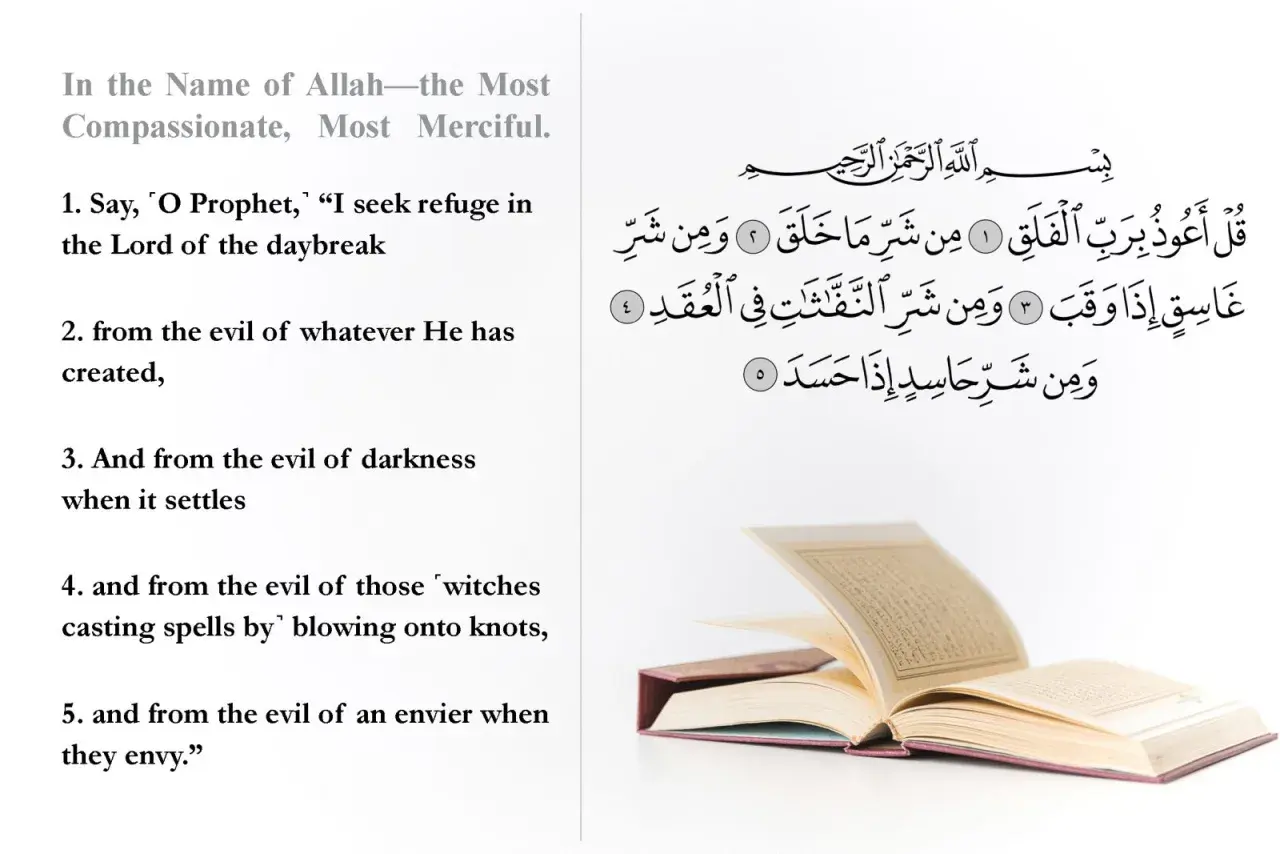 In the Name of Allah—the Most
Compassionate, Most Merciful.
1. Say, ˹O Prophet,˺ “I seek refuge in
the Lord of the daybreak
2. from the evil of whatever He has
created,
3. And from the evil of darkness
when it settles
4. and from the evil of those ˹witches
casting spells by˺ blowing onto knots,
5. and from the evil of an envier when
they envy.”
بِسْمِ ٱللَّهِ ٱلرَّحْمَٰنِ ٱلرَّحِيمِ
قُلْ أَعُوذُ بِرَبِّ ٱلْفَلَقِ ١ مِن شَرِّ مَا خَلَقَ ٢ وَمِن شَرِّ
غَاسِقٍ إِذَا وَقَبَ ٣ وَمِن شَرِّ ٱلنَّفَّٰثَٰتِ فِى ٱلْعُقَدِ ٤
وَمِن شَرِّ حَاسِدٍ إِذَا حَسَدَ ٥